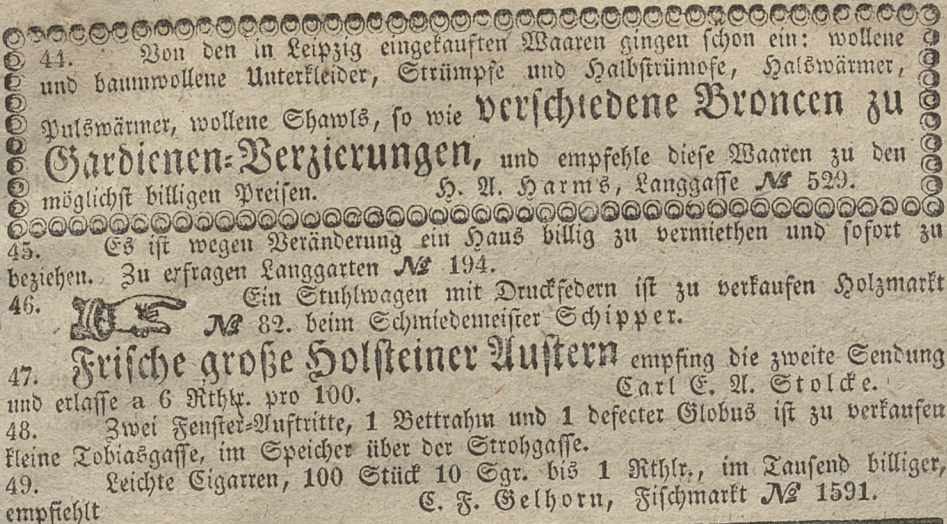 44. Von den in Leipzig eingekauften Waaren gingen schon ein: wollene
und baumwollene Unterkleider, Strümpfe und Halbstrümpfe, Halswärmer,
Pulswärmer, wollene Shawls, so wie verschiedene Broncen zu
Gardienen-Verzierungen, und empfehle diese Waaren zu den
möglichst billigen Preisen. H. A. Harms, Langgasse № 529.
45. Es ist wegen Veränderung ein Haus billig zu vermiethen und sofort zu
beziehen. Zu erfragen Langgarten № 194.
46. Ein Stuhlwagen mit Druckfedern ist zu verkaufen Holzmarkt
№ 82. beim Schmiedemeister Schipper.
47. Frische große Holsteiner Austern empfing die zweite Sendung
und erlasse a 6 Rthlr. pro 100. Carl E. A. Stolcke.
48. Zwei Fenster-Auftritte, 1 Bettrahm und 1 defecter Globus ist zu verkaufen
kleine Tobiasgasse, im Speicher über der Strohgasse.
49. Leichte Cigarren, 100 Stück 10 Sgr. bis 1 Rthlr., im Tausend billiger,
empfiehlt C. F. Gelhorn, Fischmarkt № 1591.